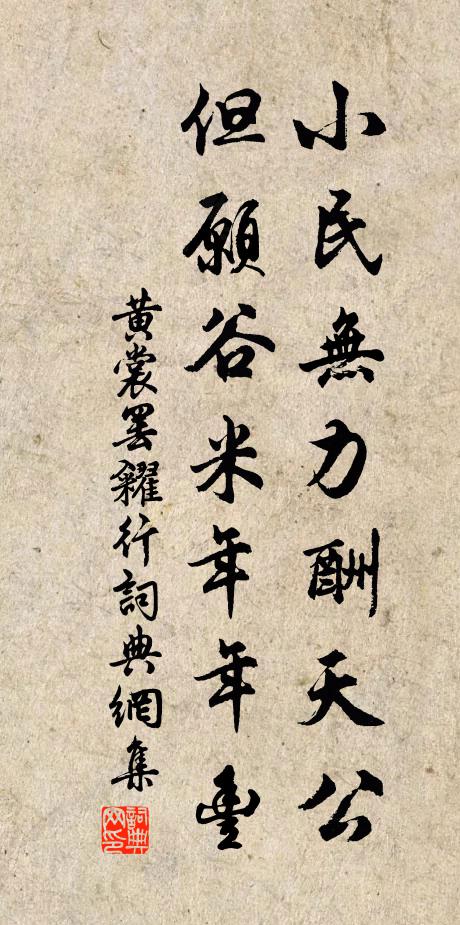 小民無力酬天公
但願谷米年年豊
黄裳罢糴行詞典網集
詞典网印